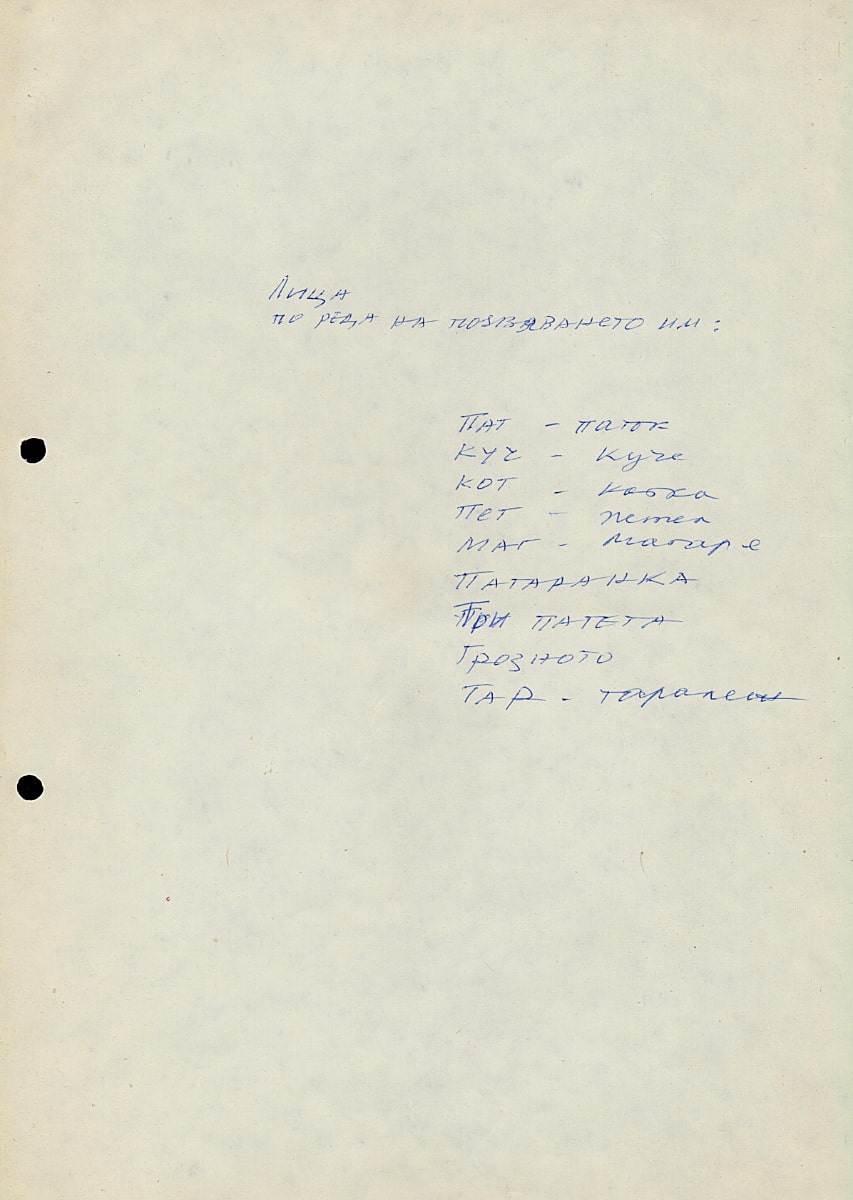 Лица
по реда на позвяването им:
ПАТ - паток
КУЧ - Куче
КОТ - котка
ПЕТ - петел
МАГ - магаре
ПАТАРАНКА
ТРИ ПАТЕТА
ГРОЗНОТО
ТАР - таралеж